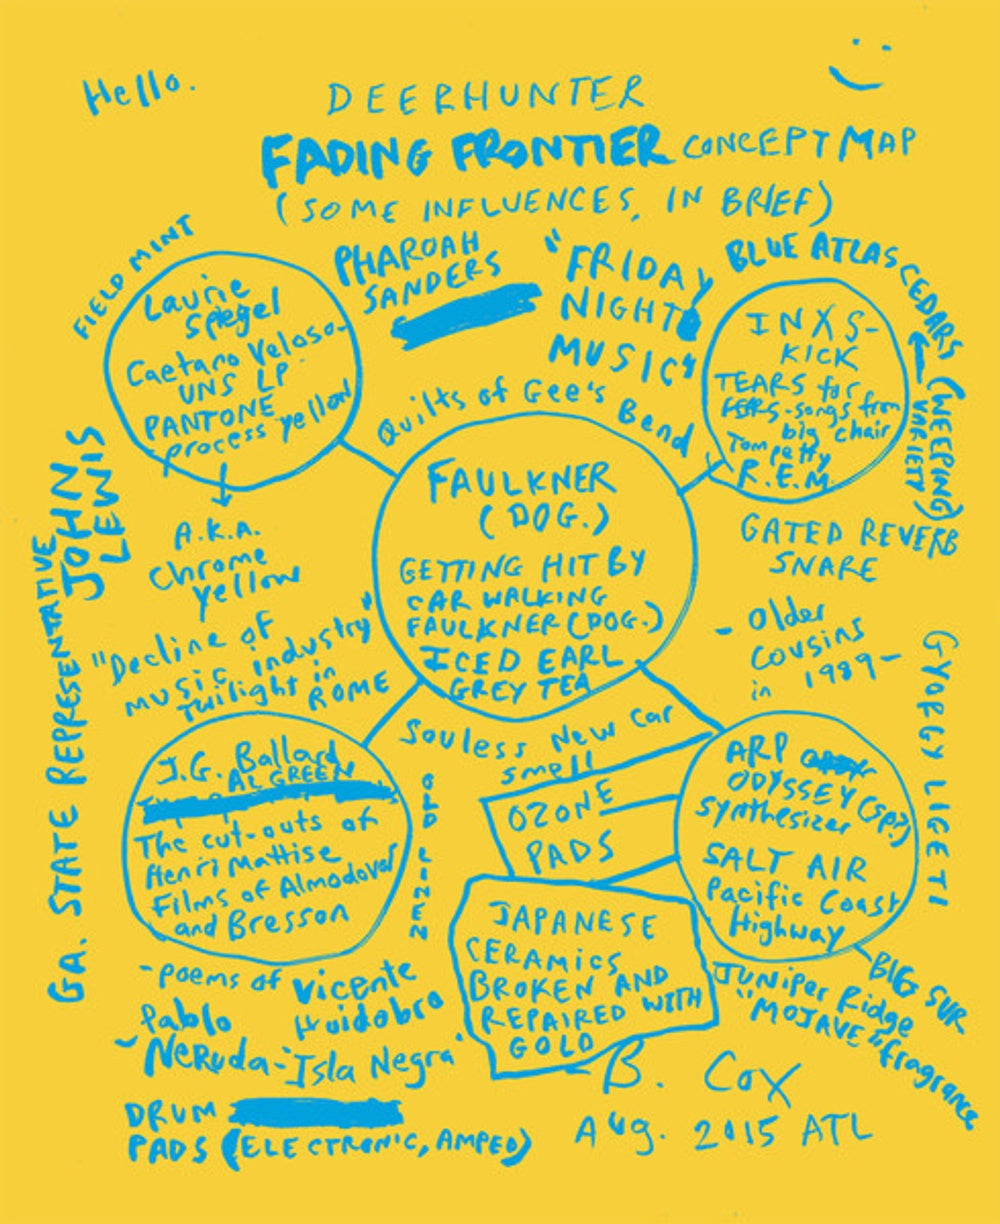 Hello.
DEERHUNTER
FADING FRONTIER CONCEPT MAP
(SOME INFLUENCES, IN BRIEF)
FIELD MINT
PHAROAH
SANDERS
"FRIDAY
NIGHT
MUSIC"
BLUE ATLAS CEDARS
(WEEPING)
VARIETY)
Laurie
Spiegel
Caetano Veloso-
UNS LP
PANTONE
process yellow
A.K.A.
Chrome
yellow
Quilts of Gee's Bend
INXS-
KICK
TEARS for
FEARS-songs from
big chair
Tom petty
R.E.M
GATED REVERB
SNARE
- Older
cousins
in 1989-
FAULKNER
(DOG.)
GETTING HIT BY
CAR WALKING
FAULKNER (DOG.)
ICED EARL
GREY TEA
GA. STATE REPRESENTATIVE
JOHN
LEWIS
"Decline of
music industry"
Twilight in
ROME
J.G. Ballard
AL GREEN
The cut-outs of
Henri Mattise
Films of Almodovar
and Bresson
Souless New Car
smell
OLD ZINEZ
OZONE
PADS
JAPANESE
CERAMICS
BROKEN AND
REPAIRED WITH
GOLD
ARP
ODYSSEY (sp?)
synthesizer
SALT AIR
Pacific Coast
Highway
GYORGY LIGETI
BIG SUR
JUNIPER Ridge
"MOJAVE" fragrance
-poems of Vicente
Huidobro
Pablo
NERUDA-"Isla Negra"
DRUM
PADS (ELECTRONIC, AMPED)
B. Cox
Aug. 2015 ATL